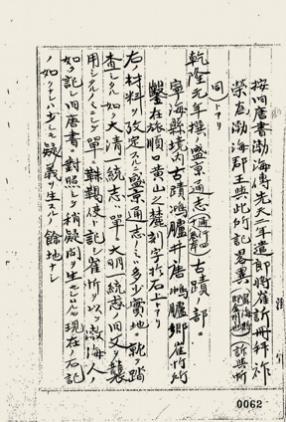 按旧唐書渤海傳先天二年遣郎將崔訢冊拜祚
榮為渤海郡王與此所記畧異
同シトアリ
乾隆元年撰ノ盛京通志 古蹟ノ部ニ
寧海縣境内古蹟鴻臚井唐鴻臚卿崔忻
鑿在旅順口黄山之麓刻字於石上トアリ
右ノ材料ヲ改定スルニ盛京通志ノミハ多少實地ニ就テ踏
査シタル如ク大清一統志ハ單ニ大明統志ノ旧文ヲ襲
用シタルノミニシテ單ニ靺鞨使ト記シ崔忻ヲ以テ渤海人ノ
如ク記シ旧唐書ニ對照シテ稍疑問ヲ生セシモ現在ノ石記
ノ如クナレハ少シモ疑義ヲ生スルノ餘地ナシ
0062